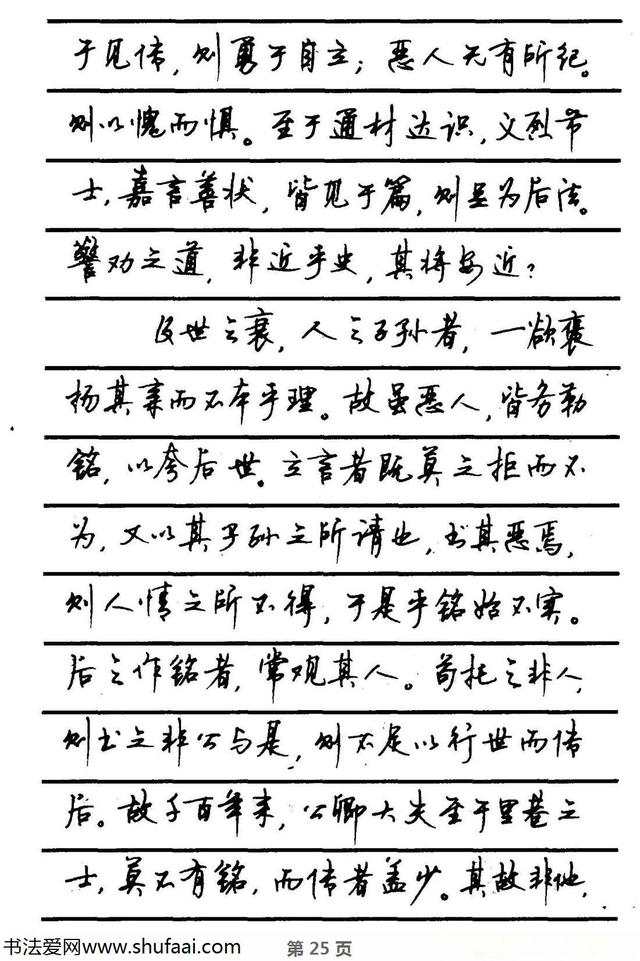 于见传，则勇于自立；恶人无有所纪。
则以愧而惧。至于通材达识，义烈节
士，嘉言善状，皆见于篇，则足为后法。
警劝之道，非近乎史，其将安近？
及世之衰，人之子孙者，一欲褒
扬其亲而不本乎理。故虽恶人，皆务勒
铭，以夸后世。立言者既莫之拒而不
为，又以其子孙之所请也，书其恶焉，
则人情之所不得，于是乎铭始不实。
后之作铭者，常观其人。苟托之非人，
则书之非公与是，则不足以行世而传
后。故千百年来，公卿大夫至于里巷之
士，莫不有铭，而传者盖少。其故非他，
书法爱网www.shufaai.com
第 25 页